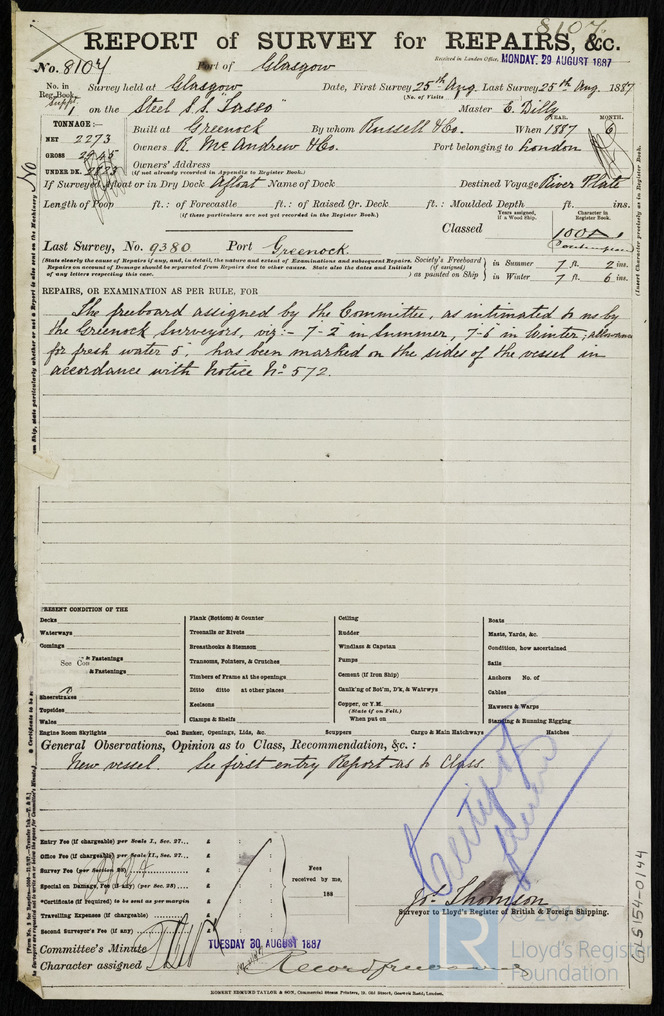 8107
REPORT of SURVEY for REPAIRS, &c.
Received in London Office, MONDAY. 29 AUGUST 1887
No. 8107 Port of Glasgow
No. in Reg. Book. Survey held at Glasgow Date, First Survey 25th Aug. Last Survey 25th Aug. 1887
(No. of Visits
Suppt. on the Steel S.S. "Tasso" Master E. Dilly
TONNAGE:— Built at Greenock By whom Russell & Co. When 1887 YEAR. MONTH. 6
NET 2273
GROSS Owners R. McAndrew & Co. Port belonging to London
UNDER DK. Owners' Address
(if not already recorded in Appendix to Register Book.)
If Surveyed Afloat or in Dry Dock Afloat Name of Dock Destined Voyage River Plate
Length of Poop ft.: of Forecastle ft.: of Raised Qr. Deck ft.: Moulded Depth ft. ins.
(if these particulars are not yet recorded in the Register Book.)
Years assigned, if a Wood Ship. Character in Register Book.
Classed 100A1
Last Survey, No. 9380 Port Greenock
(State clearly the cause of Repairs if any, and, in detail, the nature and extent of Examinations and subsequent Repairs. Repairs on account of Damage should be separated from Repairs due to other causes. State also the dates and Initials of any letters respecting this case.
Society's Freeboard (if assigned) as painted on Ship in Summer 7 ft. 2 ins.
in Winter 7 ft. 6 ins.
REPAIRS, OR EXAMINATION AS PER RULE, FOR
The freeboard assigned by the Committee, as intimated to us by
the Greenock Surveyors, viz:- 7-2 in Summer, 7-6 in Winter; allowance
for fresh water 5", has been marked on the sides of the vessel in
accordance with Notice No. 572.
PRESENT CONDITION OF THE
Decks
Waterways
Comings
& Fastenings
& Fastenings
Sheerstrakes
Topsides
Wales
Engine Room Skylights
Plank (Bottom) & Counter
Treenails or Rivets
Breasthooks & Stemson
Transoms, Pointers, & Crutches
Timbers of Frame at the openings
Ditto ditto at other places
Keelsons
Clamps & Shelfs
Coal Bunker, Openings, Lids, &c.
Ceiling
Rudder
Windlass & Capstan
Pumps
Cement (if Iron Ship)
Caulk'ng of Bot'm, D'k, & Watrwys
Copper, or Y.M.
(State if on Felt.)
When put on
Scuppers
Cargo & Main Hatchways
Boats
Masts, Yards, &c.
Condition, how ascertained
Sails
Anchors No. of
Cables
Hawsers & Warps
Standing & Running Rigging
Hatches
General Observations, Opinion as to Class, Recommendation, &c.:
New vessel. See first entry Report as to Class.
Entry Fee (if chargeable) per Scale I., Sec. 27... £ : :
Office Fee (if chargeable) per Scale II., Sec. 27... £
Survey Fee (per Section 28) £
Special on Damage, Fee (if any) (per Sec. 28) £
*Certificate (if required) to be sent as per margin £
Travelling Expenses (if chargeable) £
Second Surveyor's Fee (if any) £
Fees received by me,
188
Jos. Thomson
Surveyor to Lloyd's Register of British & Foreign Shipping.
Committee's Minute TUESDAY 30 AUGUST 1887
Character assigned
ROBERT EDMUND TAYLOR & SON, Commercial Steam Printers, 19, Old Street, Goswell Road, London.
GLS154-0144
© 2023
Lloyd's Register
Foundation